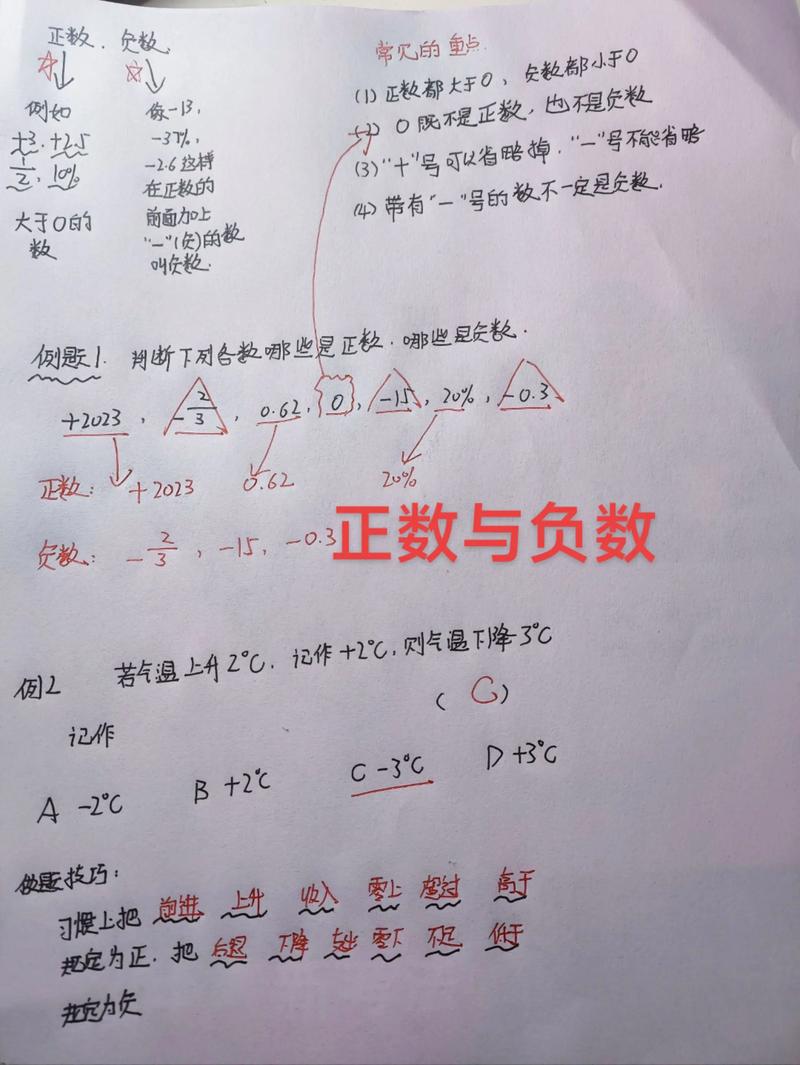 正数、负数
例如
+3、+2.5
1/2,10%
大于0的
数
像-13,
-37%,
-2.6这样
在正数的
前面加上
“-”(负)的数
叫负数.
常见的重点
(1) 正数都大于0,负数都小于0
(2) 0既不是正数,也不是负数
(3) “+”号可以省略掉.“-”号不能省略
(4) 带有“-”号的数不一定是负数.
例题1. 判断下列各数哪些是正数.哪些是负数.
+2023, -2/3, 0.62, 0, -15, 20%, -0.3
正数: +2023 0.62 20%
负数: -2/3, -15, -0.3
正数与负数
例2 若气温上升2°C.记作+2°C,则气温下降3°C
记作 (C)
A -2°C B +2°C C -3°C D +3°C
做题技巧:
习惯上把 前进 上升 收入 零上 超过 高于
规定为正.把 后退 下降 支出 零下 不足 低于
规定为负